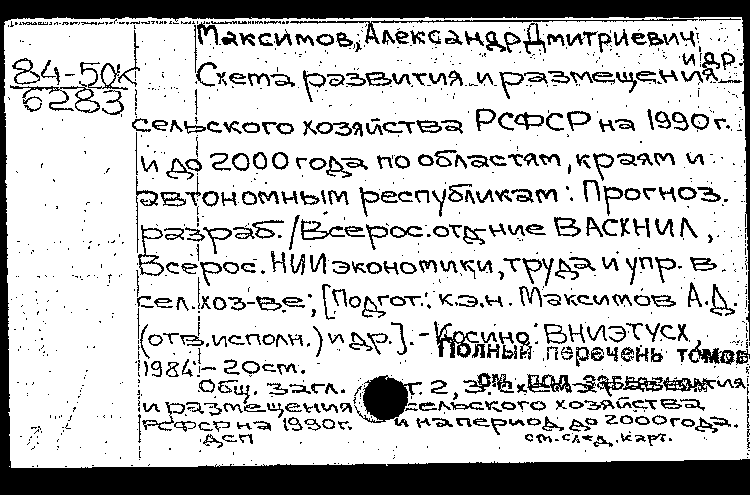 Максимов, Александр Дмитриевич
и др.
84-50к
6283
Схема развития и размещения
сельского хозяйства РСФСР на 1990 г.
и до 2000 года по областям, краям и
автономным республикам: Прогноз.
разраб. / Всерос. отд-ние ВАСХНИЛ,
Всерос. НИИ экономики, труда и упр. в
сел. хоз-ве; [Подгот.: к.э.н. Максимов А.Д.
(отв. исполн.) и др.]. - Косино: ВНИЭТУСХ,
Полный перечень томов
1984 - 20 см.
см. под заглавием
Общ. загл. т. 2, 3: Схема развития
и размещения сельского хозяйства
РСФСР на 1990 г. и на период до 2000 года.
ДСП см. след. карт.